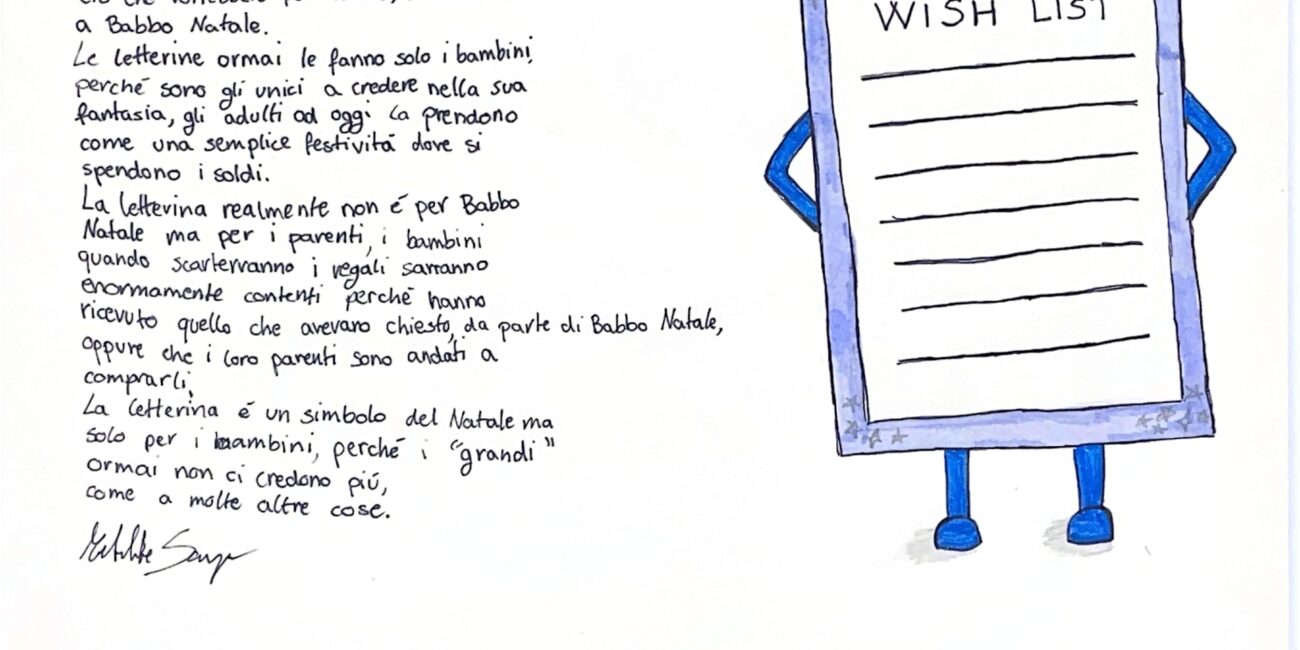 a Babbo Natale.
Le letterine ormai le fanno solo i bambini,
perché sono gli unici a credere nella sua
fantasia, gli adulti ad oggi la prendono
come una semplice festività dove si
spendono i soldi.
La letterina realmente non é per Babbo
Natale ma per i parenti, i bambini
quando scarterranno i regali sarranno
enormamente contenti perché hanno
ricevuto quello che avevano chiesto, da parte di Babbo Natale,
oppure che i loro parenti sono andati a
comprarli,
La letterina é un simbolo del Natale ma
solo per i bambini, perché i "grandi"
ormai non ci credono piú,
come a molte altre cose.
WISH LIST